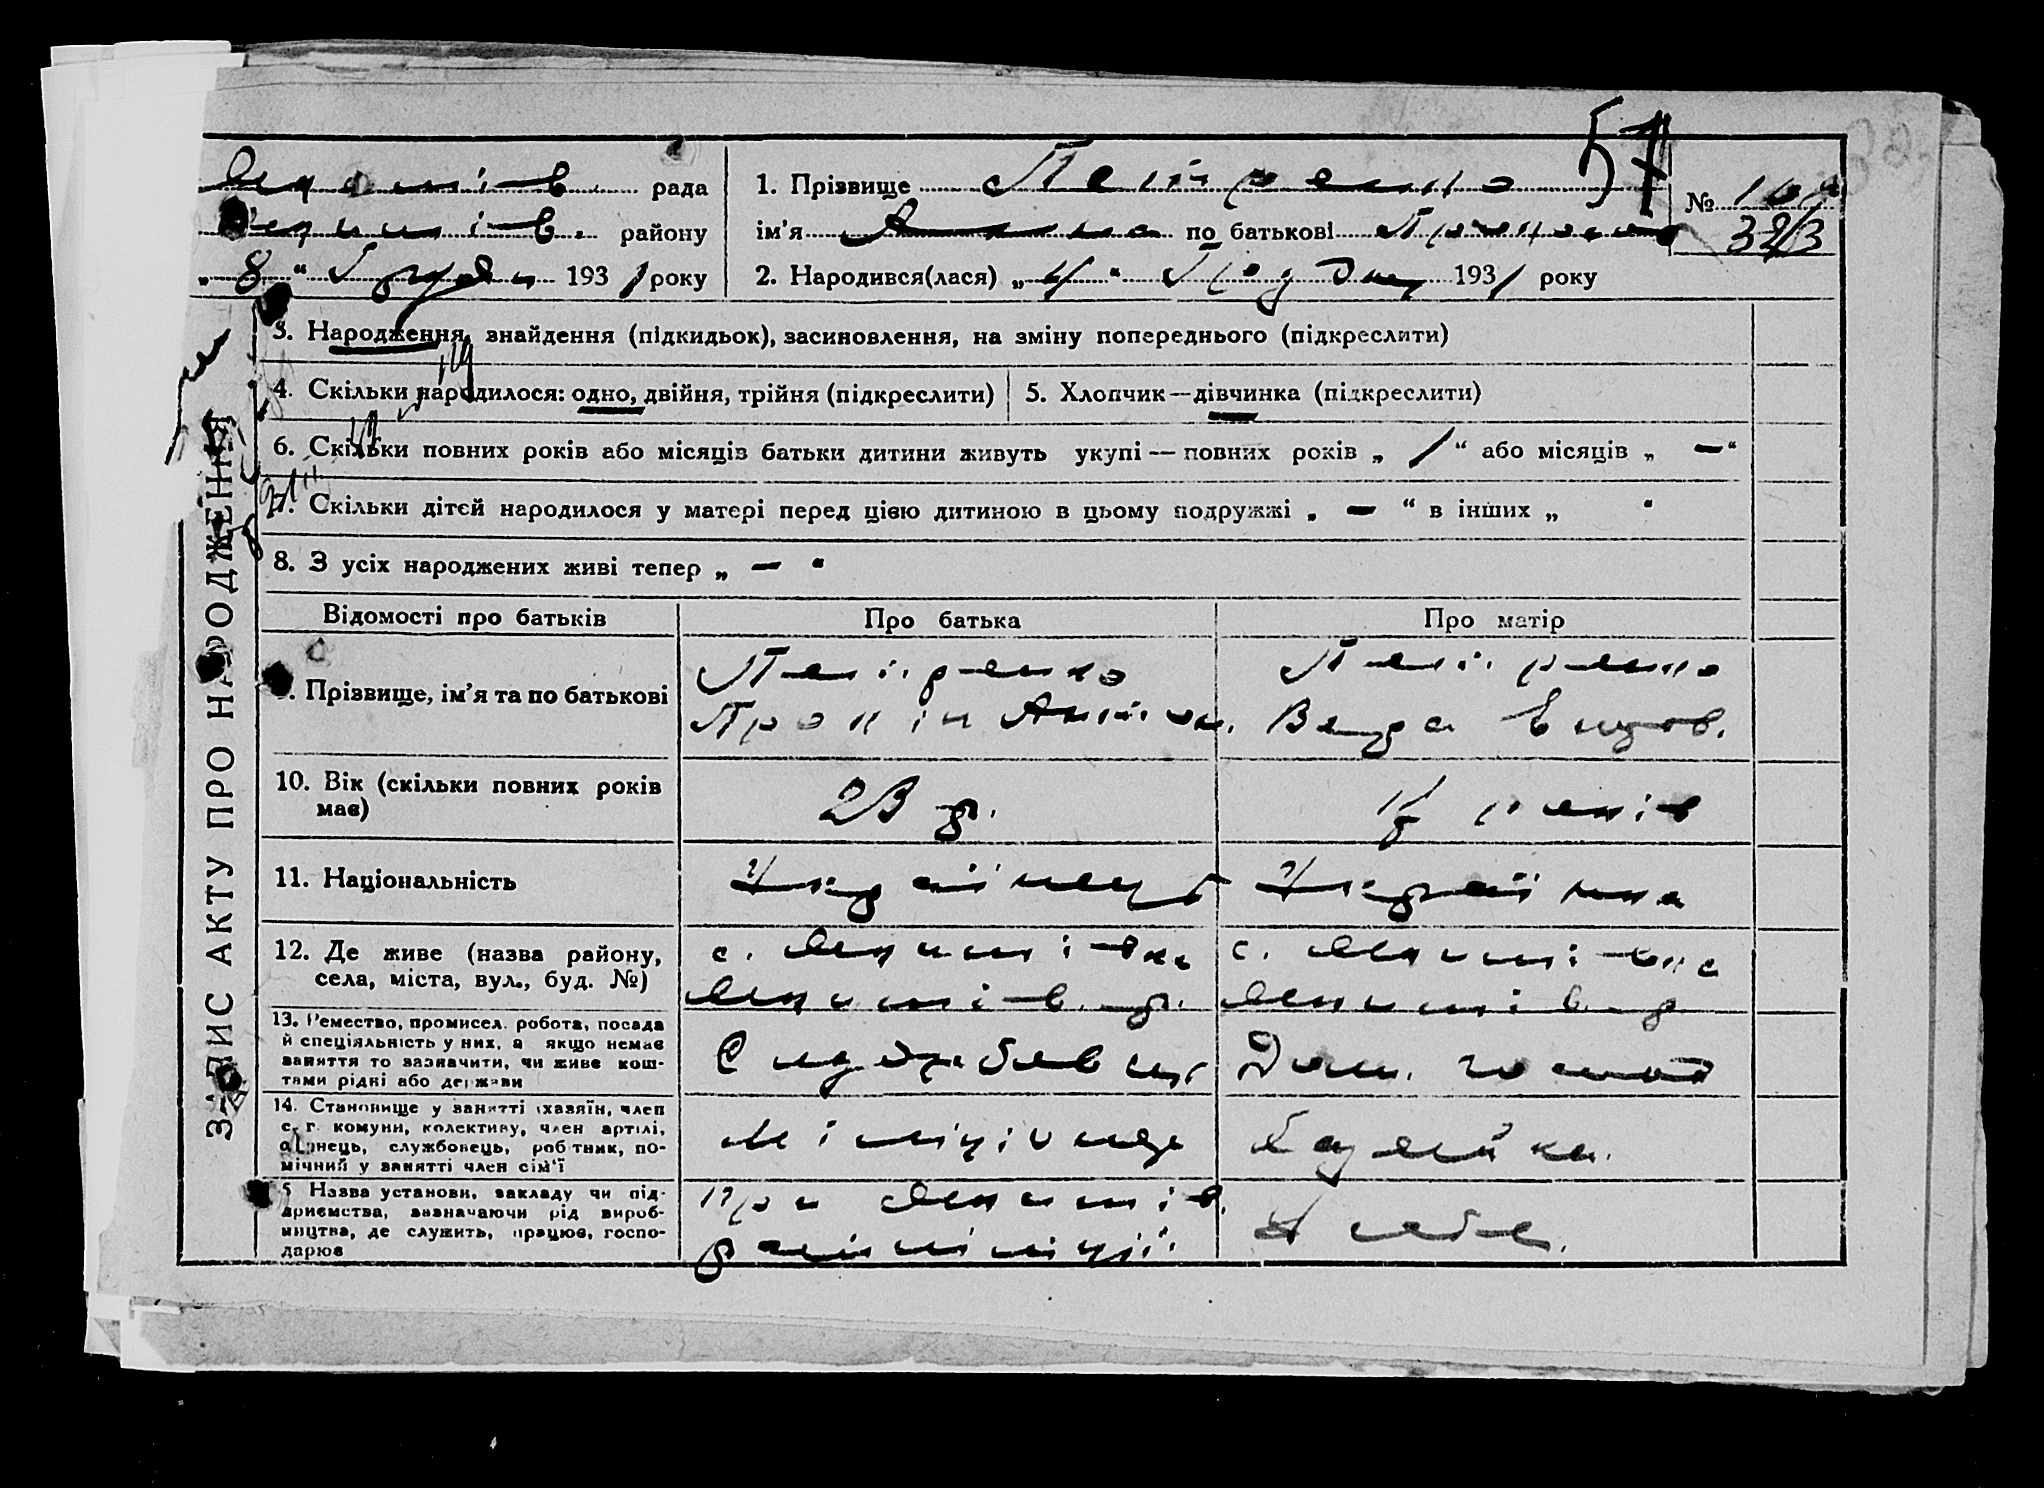 рада
району
„ 8 “ Грудня 1931 року
1. Прізвище Петренко
ім’я Ганна по батькові
2. Народився(лася) „ 4 “ Грудня 1931 року
57
№
32/3
ЗАПИС АКТУ ПРО НАРОДЖЕННЯ
3. Народження, знайдення (підкидьок), засиновлення, на зміну попереднього (підкреслити)
4. Скільки народилося: одно, двійня, трійня (підкреслити)
5. Хлопчик—дівчинка (підкреслити)
6. Скільки повних років або місяців батьки дитини живуть укупі — повних років „ / “ або місяців „ — “
7. Скільки дітей народилося у матері перед цією дитиною в цьому подружжі „ — “ в інших „ “
8. З усіх народжених живі тепер „ — “
Відомості про батьків
Про батька
Про матір
9. Прізвище, ім’я та по батькові
Петренко
Петренко
10. Вік (скільки повних років має)
23 р.
років
11. Національність
Українець
Українка
12. Де живе (назва району,
села, міста, вул., буд. №)
с.
с.
13. Ремество, промисел, робота, посада
й спеціяльність у них, а якщо немає
заняття то зазначити, чи живе кош-
тами рідні або держави
Дом. госпад
14. Становище у занятті (хазяїн, член
с.-г. комуни, колективу, член артілі,
одинець, службовець, робітник, по-
мічний у занятті член сім’ї
Міліціонер
15. Назва установи, закладу чи під-
приємства, зазначаючи рід вироб-
ництва, де служить, працює, госпо-
дарює
При
рай міліції
У себе.